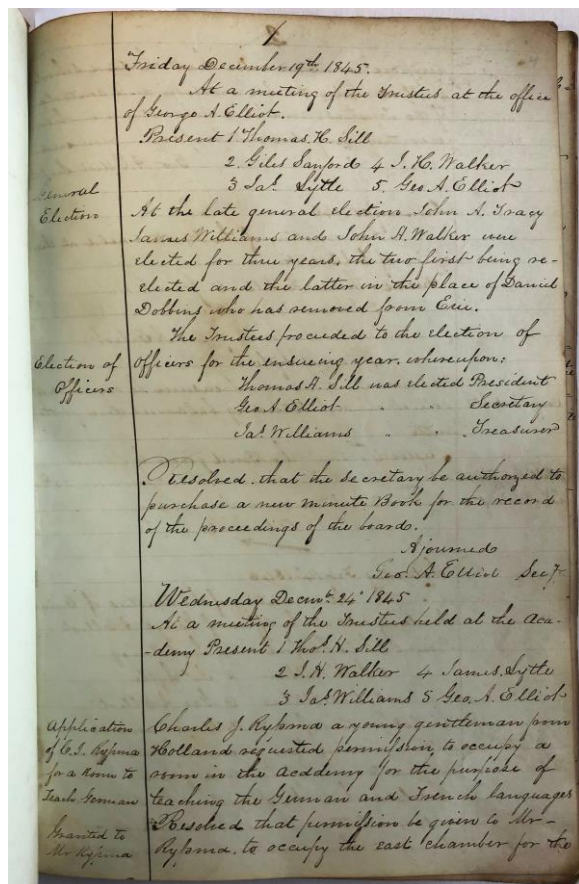 1
Friday December 19th 1845.
At a meeting of the Trustees at the office
of George A Elliot.
Present 1 Thomas. H. Sill
2. Giles Sanford 4 J. H. Walker
3 Jas. Lytle 5. Geo A. Elliot
General
Election
At the late general election John A. Tracy
James Williams and John H. Walker were
elected for three years, the two first being re-
elected and the latter in the place of Daniel
Dobbins who has removed from Erie.
The Trustees proceeded to the election of
Election of
Officers
officers for the ensueing year. whereupon:
Thomas H. Sill was elected President
Geo A Elliot " " Secretary
Jas. Williams " " Treasurer
Resolved. that the secretary be authorized to
purchase a new minute Book for the record
of the proceedings of the board.
Ajourned
Geo. A. Elliot Secy
Wednesday Decmb. 24th 1845
At a meeting of the Trustees held at the Aca-
-demy Present 1 Thos. H. Sill
2 J. H. Walker 4 James. Lytle
3 Jas. Williams 5 Geo. A. Elliot
Application
of C. J. Rypma
for a Room to
Teach German
Charles J. Rypma a young gentleman from
Holland requested permission, to occupy a
room in the Academy for the purpose of
teaching the German and French languages
Granted to
Mr Rypma
Resolved that permission be given to Mr-
Rypma. to occupy the east chamber for the